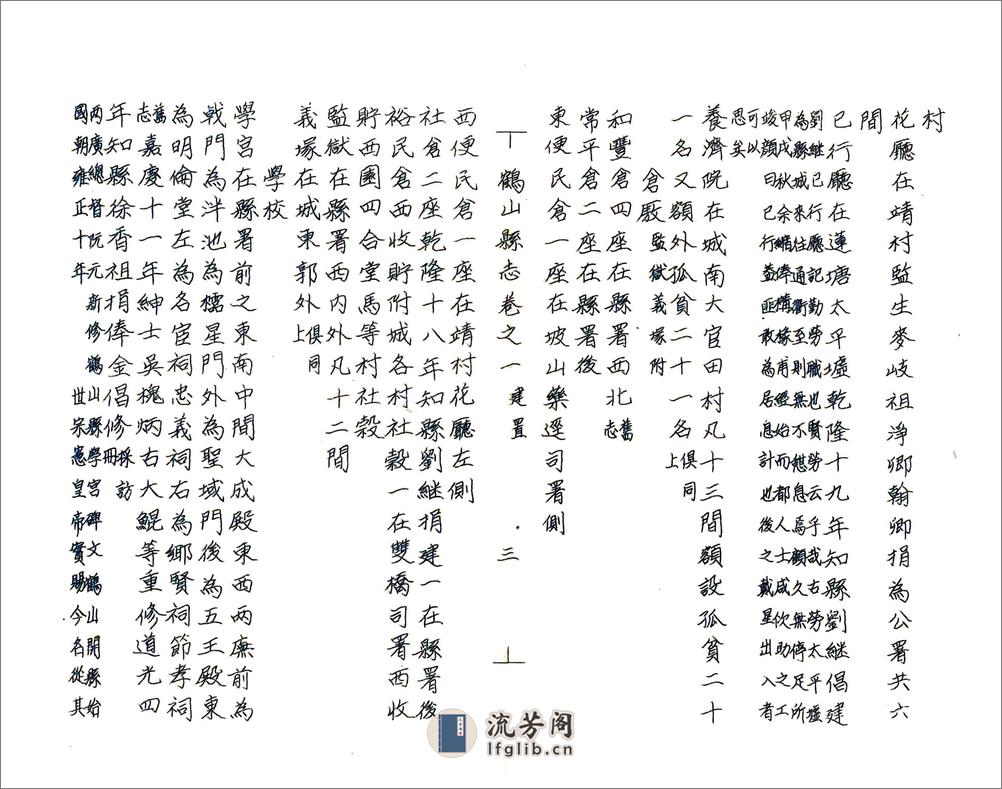 村
花廳在靖村監生麥岐祖淨卿翰卿捐為公署共六
間
已行廳在蓮塘太平墟乾隆十九年知縣劉繼倡建
劉繼已行廳記勤勞職也賢勞云乎哉古勞太平墟
可以
思矣
養濟院在城南大官田村凡十三間額設孤貧二十
一名又額外孤貧二十一名俱同上
倉廒監獄義塚附
和豐倉四座在縣署西北舊志
常平倉二座在縣署後
東便民倉一座在坡山藥逕司署側
鶴山縣志卷之一 建置 三
西便民倉一座在靖村花廳左側
社倉二座乾隆十八年知縣劉繼捐建一在縣署後
裕民倉西收貯附城各村社穀一在雙橋司署西收
貯西圍四合堂馬等村社穀
監獄在縣署西內外凡十二間
義塚在城東郭外俱同上
學校
學宮在縣署前之東南中間大成殿東西兩廡前為
戟門為泮池為櫺星門外為聖域門後為五王殿東
為明倫堂左為名宦祠忠義祠右為鄉賢祠節孝祠
舊志嘉慶十一年紳士吳槐炳右大鯤等重修道光四
年知縣徐香祖捐俸金倡修採訪冊
兩廣總督阮元新修鶴山縣學宮碑文鶴山開縣始
國朝雍正十年世宗憲皇帝實賜今名從其
流芳阁
lfglib.cn